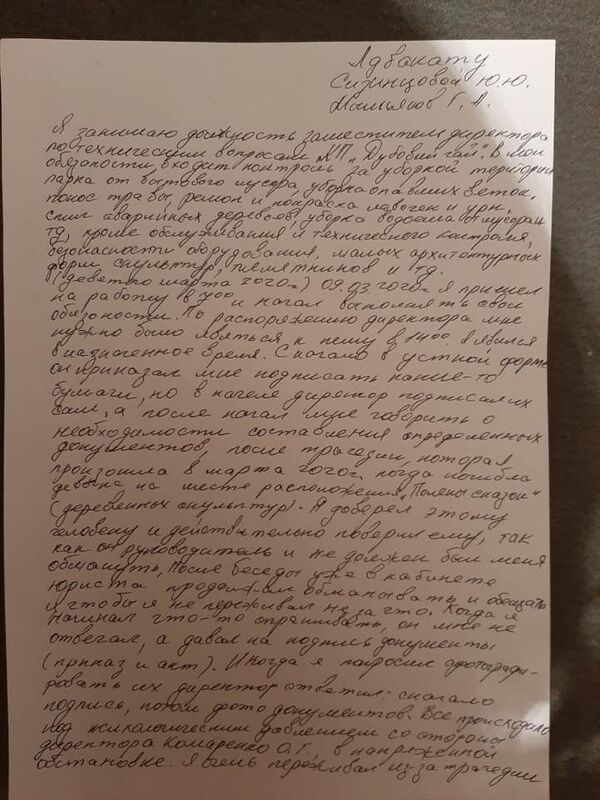 Адвокату
Сизинцовой Ю.Ю.
Г. А.
Я занимаю должность заместителя директора
по техническим вопросам КП „Дубовий Гай". В мои
обязоности входит контроль за уборкой територии
парка от бытового мусора, уборка опавших веток,
покос травы, ремон и покраска лавочек и урн,
спил аварийных деревьев, уборка водоема от мусора и
тд, кроме обслуживания и технического контроля,
безопасности оборудования, малых архитектурных
форм скульптур, пямятников и тд.
(девятого марта 2020г) 09.03.2020г я пришел
на работу в 7 00 и начал выполнять свои
обязоности. По распоряжению директора мне
нужно было явяться к нему в 14 00. Я явился
в назначенное время. Сначало в устной форме
он приказал мне подписать какие-то
бумаги, но в начеле директор подписал их
сам, а после начал мне говорить о
необходимости составления определенных
документов, после трагедии, которая
произошла 8 марта 2020г. когда погибла
девочка на месте расположения „Поляны сказок"
(деревянных скульптур). Я доверял этому
человеку и действительно поверил ему, так
как он руководитель и не должен был меня
обмануть, После беседы уже в кабинете
юриста продолжал обманывать и обещать
я чтобы я не переживал ни за что. Когда я
начинал что-то спрашивать, он мне не
отвечал, а давал на подпись документы
(приказ и акт). И когда я попросил фотографи-
ровать их директор ответил: сначало
подпись, потом фото документов. Все происходило
под психологическим давлением со стороны
директора Комаренко О.Г., в напряженной
обстановке. Я очень переживал из-за трагедии